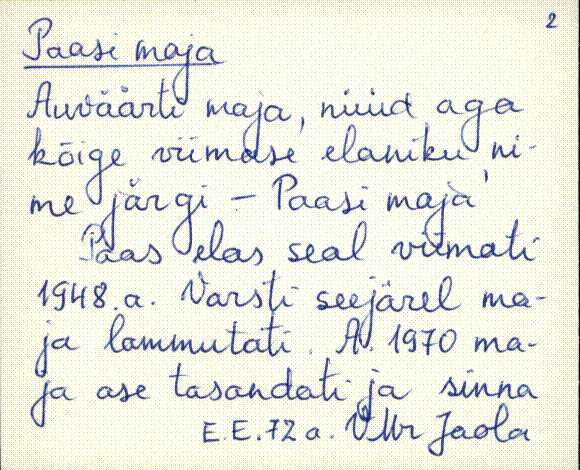 2
Paasi maja
Auväärti maja, nüüd aga
kõige viimase elaniku ni-
me järgi – Paasi maja
Paas elas seal viimati
1948. a. Varsti seejärel ma-
ja lammutati. A. 1970 ma-
ja ase tasandati ja sinna
E.E. 72 a. Jaola